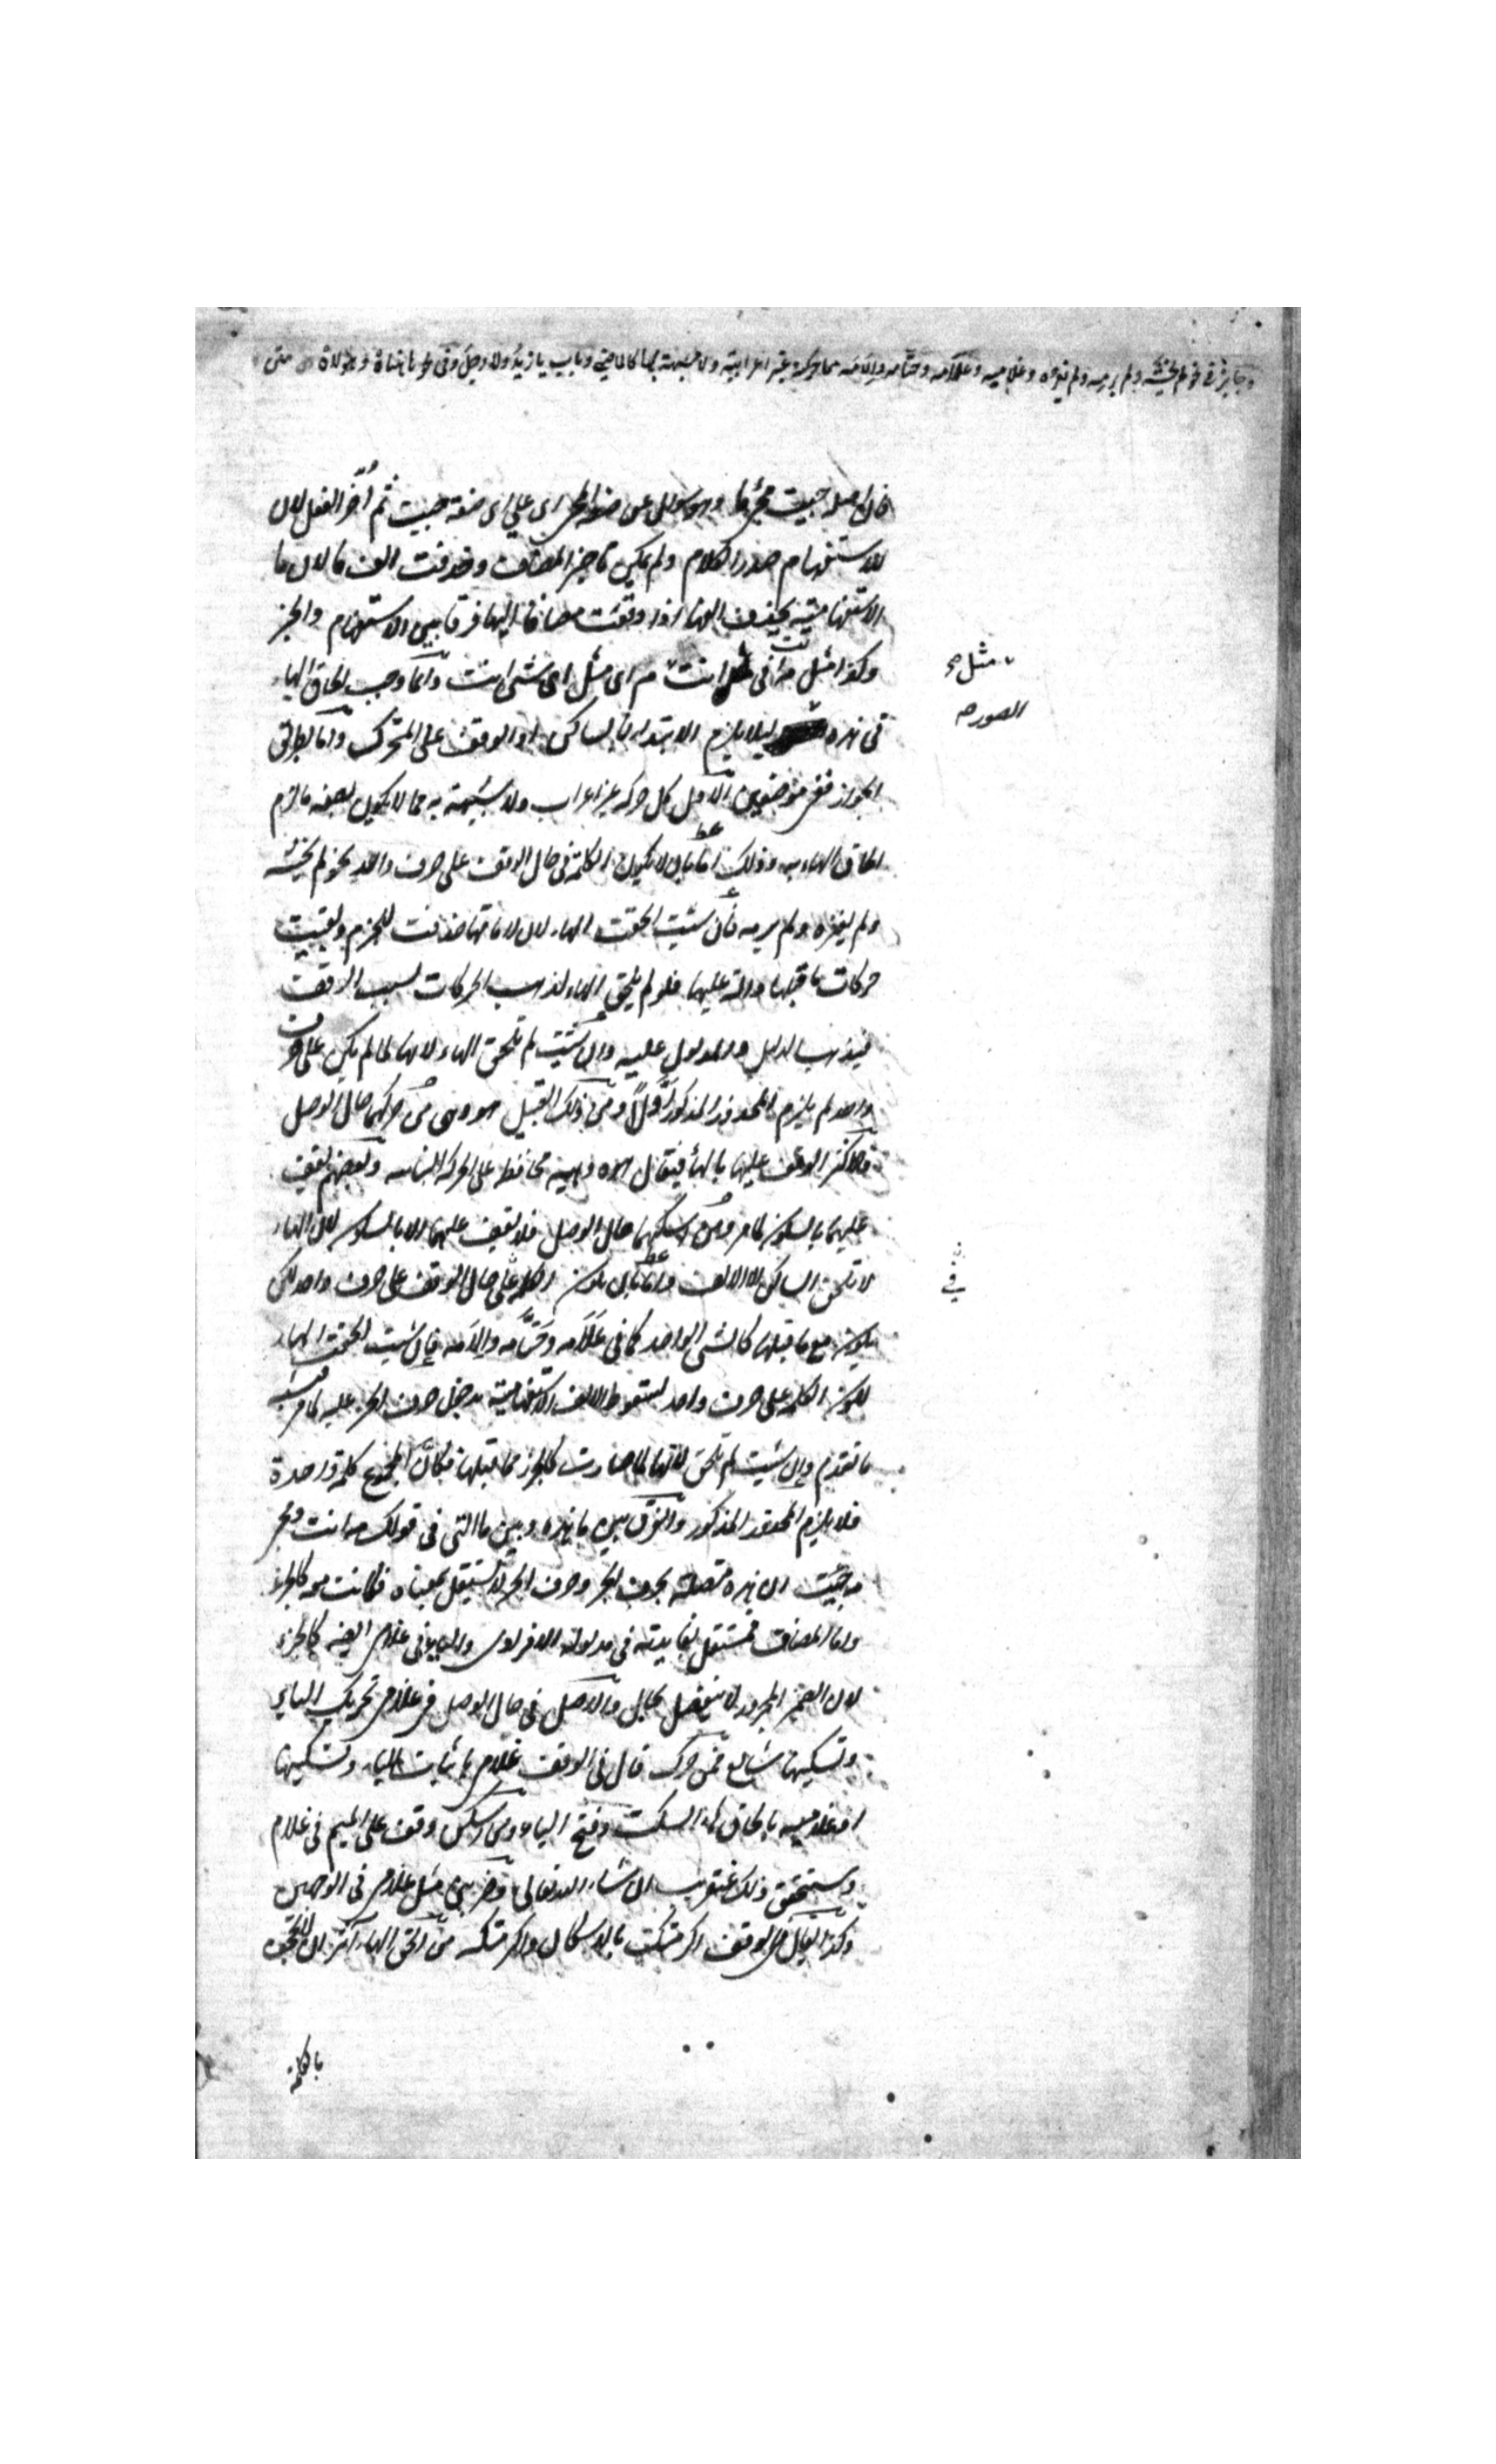 وجائز في نحو لم يخشه ولم يرمه ولم يغزه وغلاميه وعلامه وحتامه والامه مما حركته غير اعرابية ولا مشبهة بها كالماضي وباب يا زيد ولا رجل وفي نحو هاهناه وهؤلاه متن
فان اصله جئت مجئ ما وهو سؤال عن صفة المجئ اى على اى صفة جئت ثم اخر الفعل لان
للاستفهام صدر الكلام ولم يمكن تاخير المضاف وحذفت الف ما لان ما
الاستفهامية يحذف الفها اذا وقعت مضافا اليها فرقا بين الاستفهام والخبر
وكذا مثل مه فى مثل م انت اى مثل اى شئ انت وانما وجب الحاق الهاء
مثل مه
فى هذه لئلا يلزم الابتداء بالساكن او الوقف على المتحرك واما بطريق
الصورة
الجواز ففى موضعين الاول كل حركة غير اعراب ولا شبيهة به مما لا يكون بصفة ما لزم
الحاق الهاء به وذلك اما بان لا يكون الكلمة فى حال الوقف على حرف واحد نحو لم يخشه
ولم يغزه ولم يرمه فان شئت الحقت الهاء لان لاماتها حذفت للجزم وبقيت
حركات ما قبلها دالة عليها فلو لم يلحق الهاء لذهب الحركات بسبب الوقف
فيذهب الدليل والمدلول عليه وان شئت لم تلحق الهاء لانها لما لم يكن على حرف
واحد لم يلزم المحذور المذكور اولا ومن ذلك القبيل هو وهى من حركهما حال الوصل
فالاكثر الوقف عليها بالهاء فيقال هوه وهيه محافظة على الحركة البنائية وبعضهم يقف
عليهما بالسكون كما مر ومن اسكنهما حال الوصل فلا يقف عليهما الا بالسكون لان الهاء
لا تلحق الساكن الا الالف واما بان يكون الكلمة فى حال الوقف على حرف واحد لكن
فى
يكون مع ما قبلها كالشئ الواحد كما فى علامه وحتامه والامه فان شئت الحقت الهاء
لكون الكلمة على حرف واحد لسقوط الالف الاستفهامية بدخول حرف الجر عليه كما مر
ما تقدم وان شئت لم تلحق لانها لما صارت كالجزء مما قبلها فكان المجموع كلمة واحدة
فلا يلزم المحذور المذكور والفرق بين ما هذه وبين ما التى فى قولك مه انت ومجئ
مه جئت ان هذه متصلة بحرف الجر وحرف الجر لا يستقل بمعناه فكانت معه كالجزء
واما المضاف فمستقل بفايدته فى مدلوله الافرادى والياء فى غلامى ايضا كالجزء
لان الضمير المجرور لا ينفصل بحال والاصل فى حال الوصل فى غلامى تحريك الياء
وتسكينها شايع فمن حرك قال فى الوقف غلامى باثبات الياء وتسكينها
او غلاميه بالحاق هاء السكت وفتح الياء ومن اسكن وقف على الميم فى غلام
وستحقق ذلك عنقريب ان شاء الله تعالى وضربنى مثل غلامى فى الوجهين
وكذا يقال فى الوقف اكرمتك بالاسكان واكرمتكه من الحق الهاء اكثر ان لا تلحق
بالكلمة